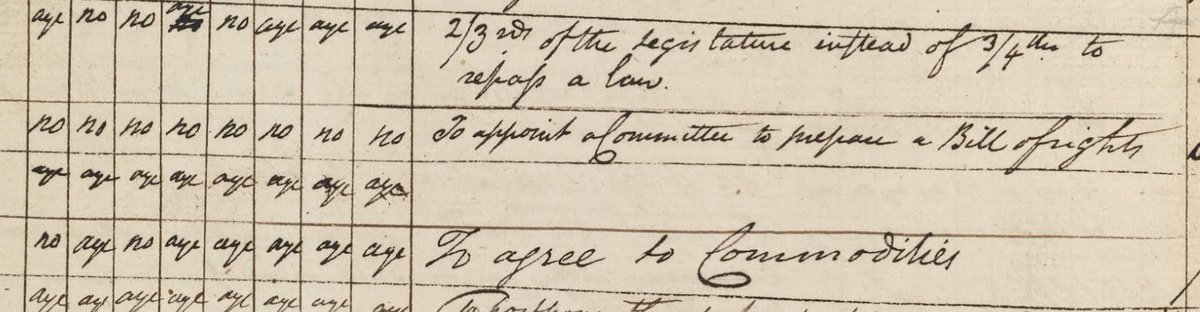 aye no no aye no aye aye aye 2/3rds of the Legislature instead of 3/4ths to
repass a law.
no no no no no no no no To appoint a Committee to prepare a Bill of rights
aye aye aye aye aye aye aye aye
no aye no aye aye aye aye aye To agree to Commodities
aye aye aye aye aye aye aye aye To postpone the